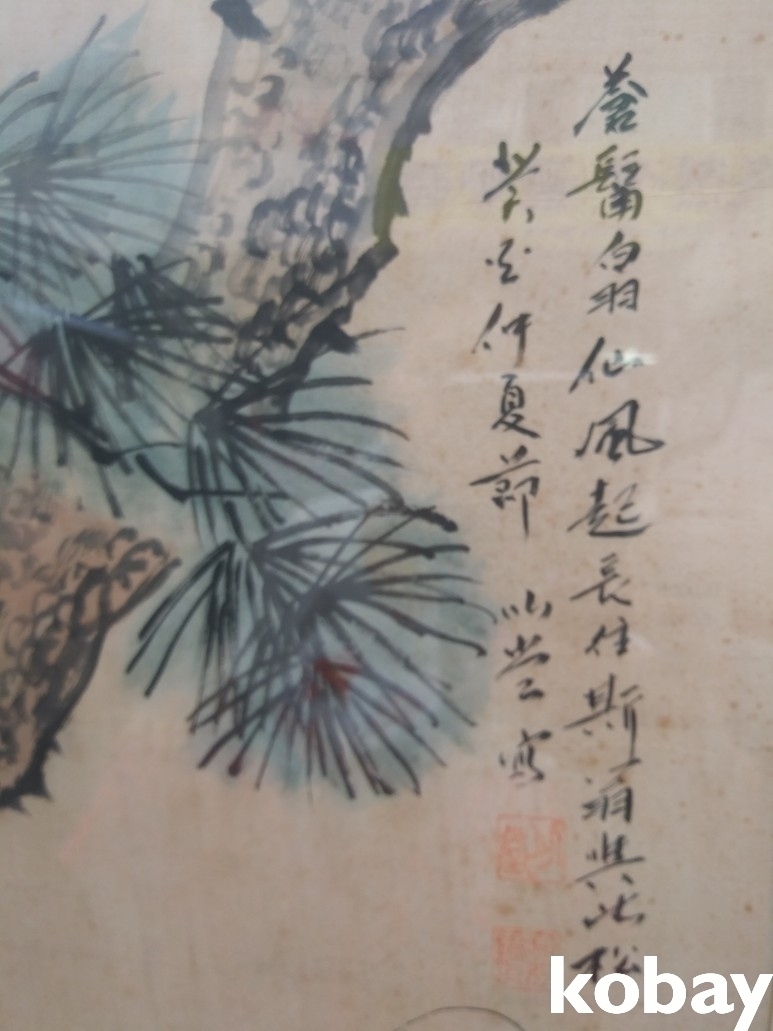 蒼髯白羽仙風起長住斯須興此松
癸 仲夏節 山堂寫
kobay